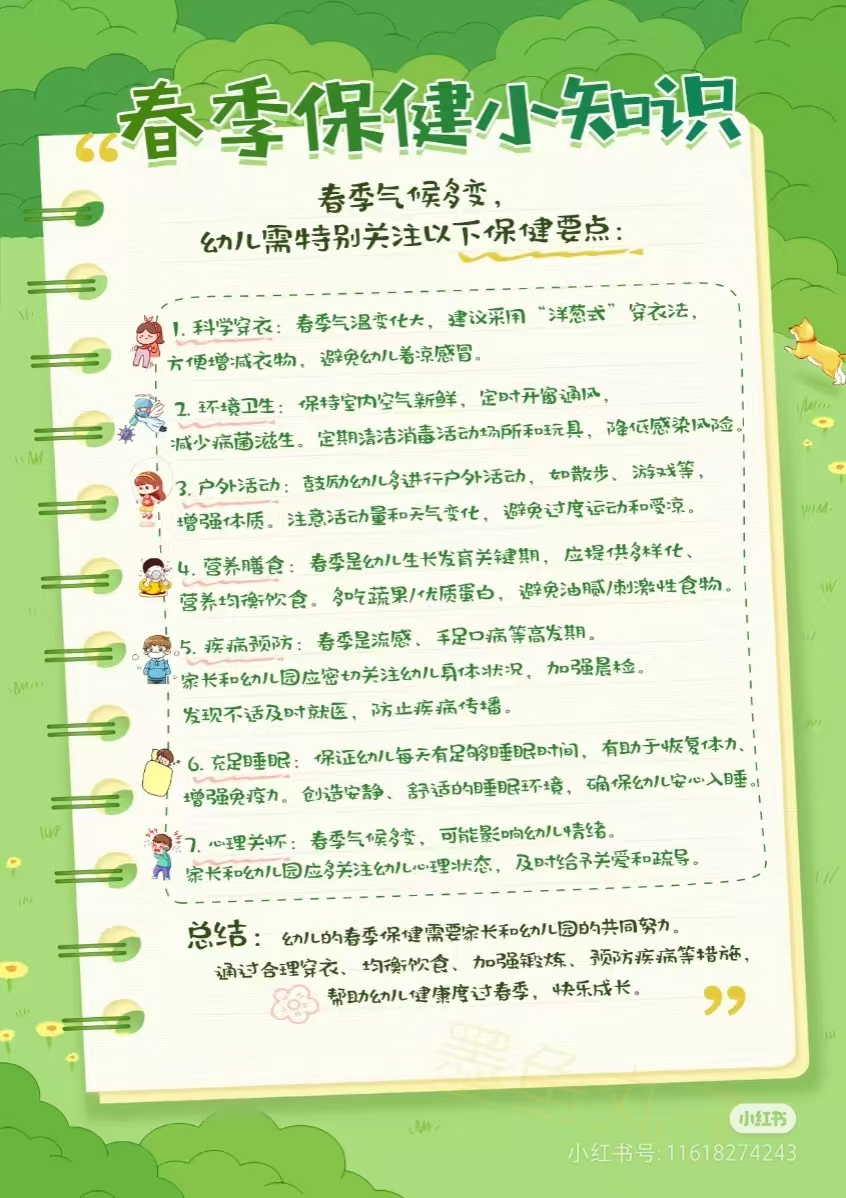 春季保健小知识
春季气候多变，
幼儿需特别关注以下保健要点：
1. 科学穿衣：春季气温变化大，建议采用“洋葱式”穿衣法，
方便增减衣物，避免幼儿着凉感冒。
2. 环境卫生：保持室内空气新鲜，定时开窗通风，
减少病菌滋生。定期清洁消毒活动场所和玩具，降低感染风险。
3. 户外活动：鼓励幼儿多进行户外活动，如散步、游戏等，
增强体质。注意活动量和天气变化，避免过度运动和受凉。
4. 营养膳食：春季是幼儿生长发育关键期，应提供多样化、
营养均衡饮食。多吃蔬果/优质蛋白，避免油腻/刺激性食物。
5. 疾病预防：春季是流感、手足口病等高发期。
家长和幼儿园应密切关注幼儿身体状况，加强晨检。
发现不适及时就医，防止疾病传播。
6. 充足睡眠：保证幼儿每天有足够睡眠时间，有助于恢复体力、
增强免疫力。创造安静、舒适的睡眠环境，确保幼儿安心入睡。
7. 心理关怀：春季气候多变，可能影响幼儿情绪。
家长和幼儿园应多关注幼儿心理状态，及时给予关爱和疏导。
总结：幼儿的春季保健需要家长和幼儿园的共同努力。
通过合理穿衣、均衡饮食、加强锻炼、预防疾病等措施，
帮助幼儿健康度过春季，快乐成长。
小红书
小红书号：11618274243